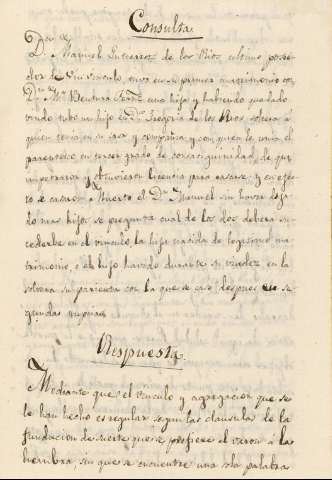 Consulta
Dn. Manuel Gutierrez de los Rios ultimo posee
dor de un vinculo, tuvo en su primer matrimonio con
Dª. Mª. Ventura una hija y habiendo quedado
viudo tubo un hijo en Dª. Gregoria de los Rios soltera á
quien tenia en su casa y compañia y con quien le unia el
parentesco en tercer grado de consanguinidad, de que
impetraron y obtuvieron licencia para casarse, y en efec
to se casaron. Muerto el Dn. Manuel sin haver deja
do mas hijos se pregunta cual de los dos deberá su
cederle en el vinculo, la hija nacida de legitimo ma
trimonio, ó el hijo havido durante su viudez en la
soltera su parienta con la que se casó despues en se
gundas nupcias.
Respuesta
Mediante que el vinculo y agregacion que se
le han hecho es regular segun las clausulas de la
fundacion de suerte que se prefiere el varon á la
hembra, sin que se encuentre una sola palabra